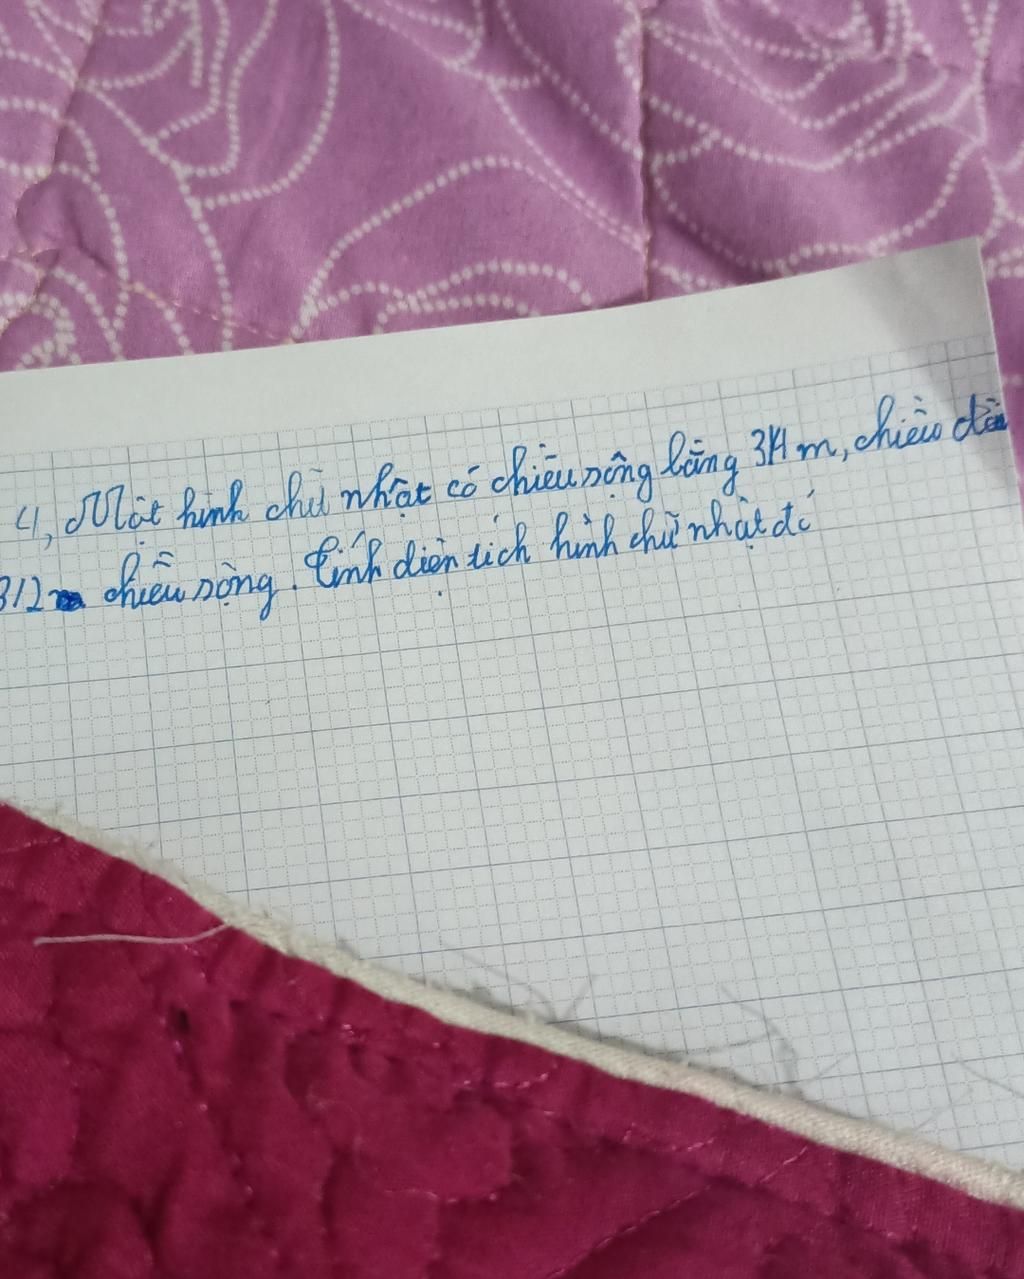 4, Một hình chữ nhật có chiều rộng bằng 3/4 m, chiều dài
3/2 chiều rộng. Tính diện tích hình chữ nhật đó